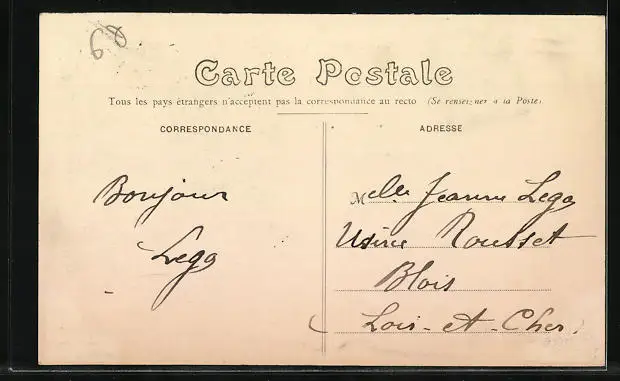 60
Carte Postale
Tous les pays étrangers n'acceptent pas la correspondance au recto (Se renseigner à la Poste)
CORRESPONDANCE
ADRESSE
Bonjour
Lega
Melle Jeanne Lega
Usine Rousset
Blois
(Loir-et-Cher)